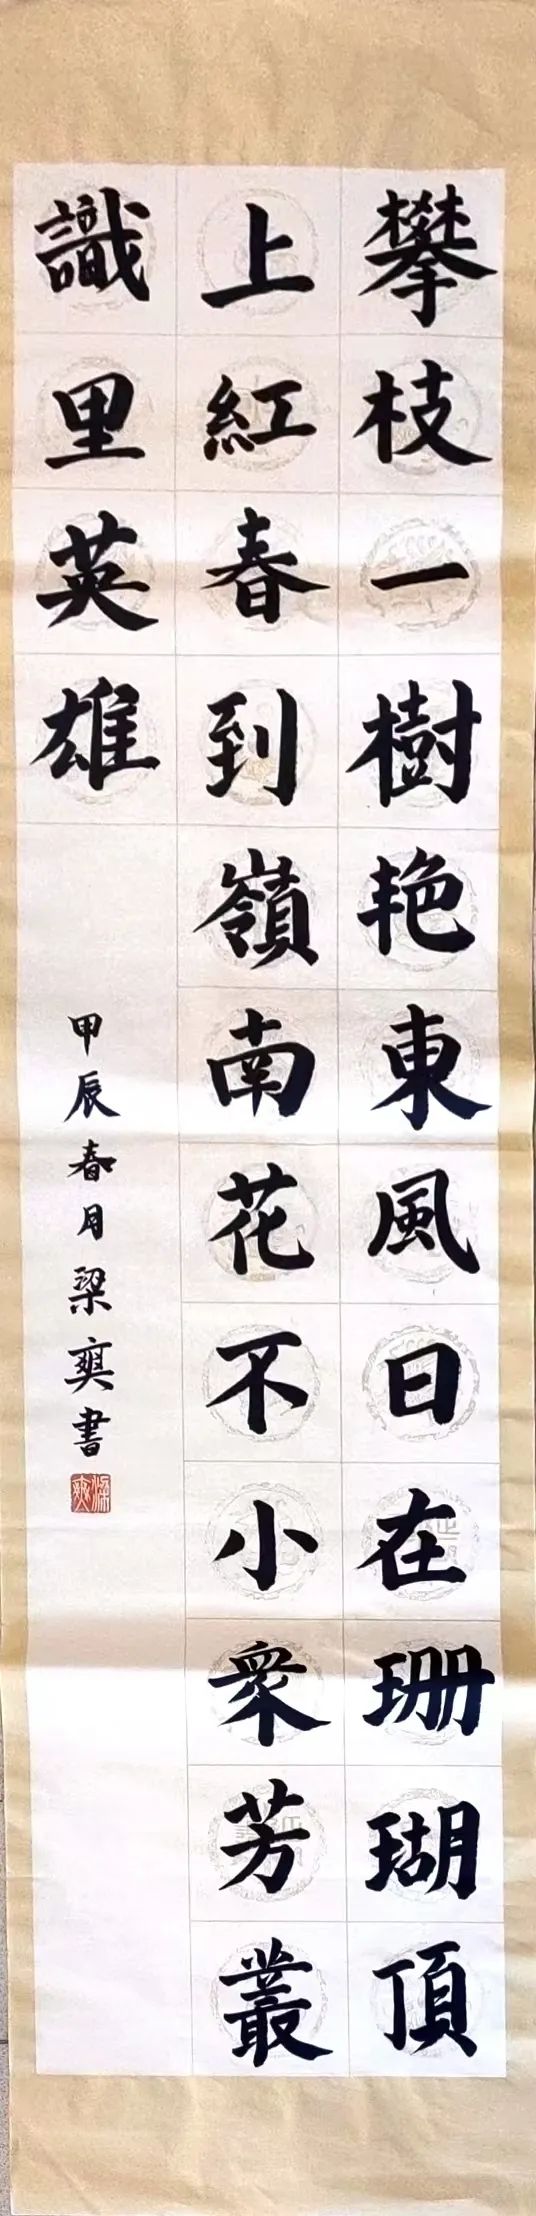 攀枝一樹艳東風日在珊瑚頂
上紅春到嶺南花不小衆芳叢
識里英雄
甲辰春月梁爽書
梁爽